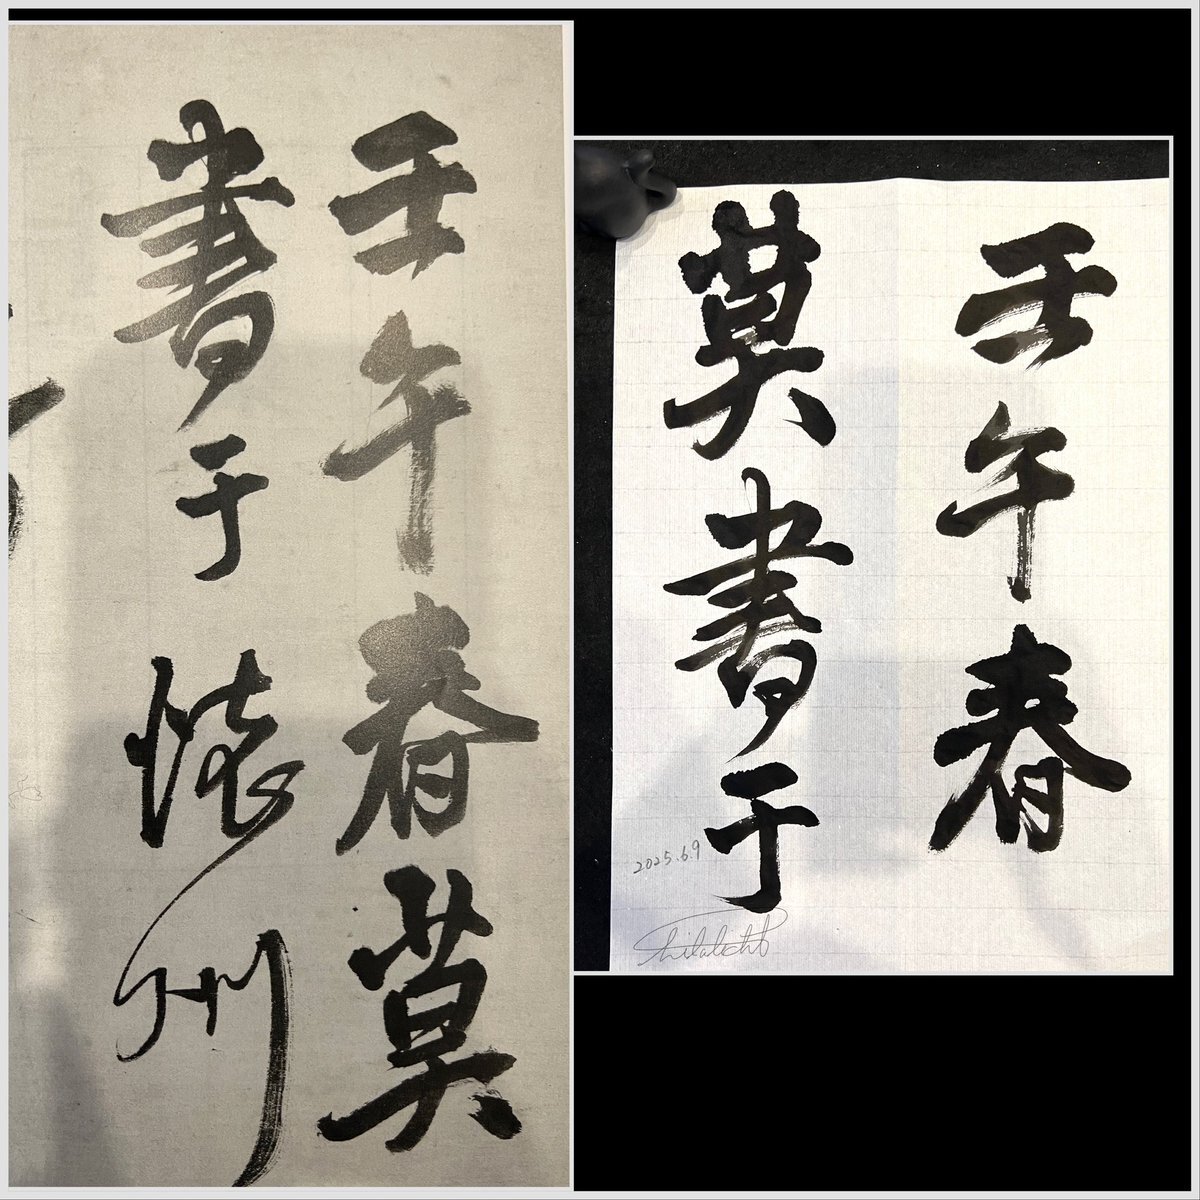 壬午春莫
書于懐州
壬午春
莫書于
2025.6.9